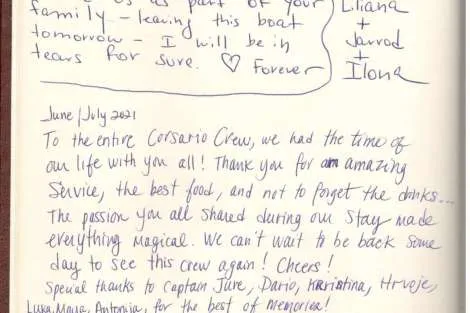 us as part of your
family - leaving this boat
tomorrow - I will be in
tears for sure. ♡ Forever
Liliana
+
Jarrod
+
Ilona
June/July 2021
To the entire Corsario Crew, we had the time of
our life with you all! Thank you for an amazing
Service, the best food, and not to forget the drinks...
The passion you all shared during our stay made
everything magical. We can't wait to be back some
day to see this crew again! Cheers!
Special thanks to Captain Jure, Dario, Kristina, Hrvoje,
Luka, Maya, Antonija, for the best of memories!